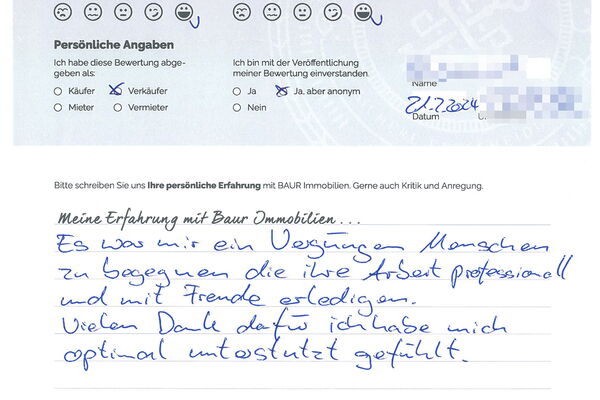 Persönliche Angaben
Ich habe diese Bewertung abge- Ich bin mit der Veröffentlichung
geben als: meiner Bewertung einverstanden.
Käufer Verkäufer Ja Ja, aber anonym
Name
Mieter Vermieter Nein 21.2.2024
Datum
Bitte schreiben Sie uns Ihre persönliche Erfahrung mit BAUR Immobilien. Gerne auch Kritik und Anregung.
Meine Erfahrung mit Baur Immobilien...
Es war mir ein Vergnügen Menschen
zu begegnen die ihre Arbeit professionell
und mit Freude erledigen.
Vielen Dank dafür ich habe mich
optimal unterstützt gefühlt.